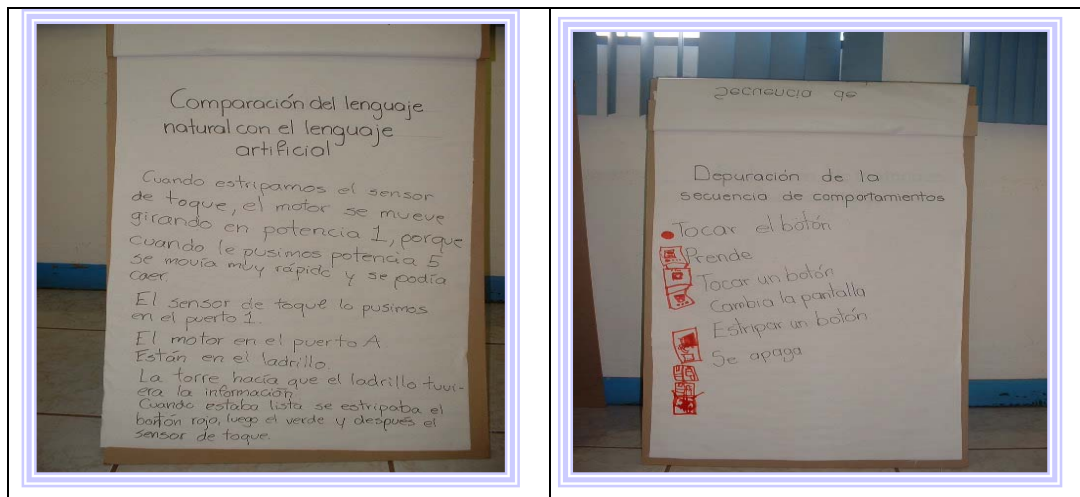 Comparación del lenguaje
natural con el lenguaje
artificial
Cuando estripamos el sensor
de toque, el motor se mueve
girando en potencia 1, porque
cuando le pusimos potencia 5
se movía muy rápido y se podía
caer.
El sensor de toque lo pusimos
en el puerto 1.
El motor en el puerto A
Están en el ladrillo.
La torre hacía que el ladrillo tuvi-
era la información.
Cuando estaba lista se estripaba el
botón rojo, luego el verde y después el
sensor de toque.
Secuencia de
Depuración de la
secuencia de comportamientos
Tocar el botón
Prende
Tocar un botón
Cambia la pantalla
Estripar un botón
Se apaga